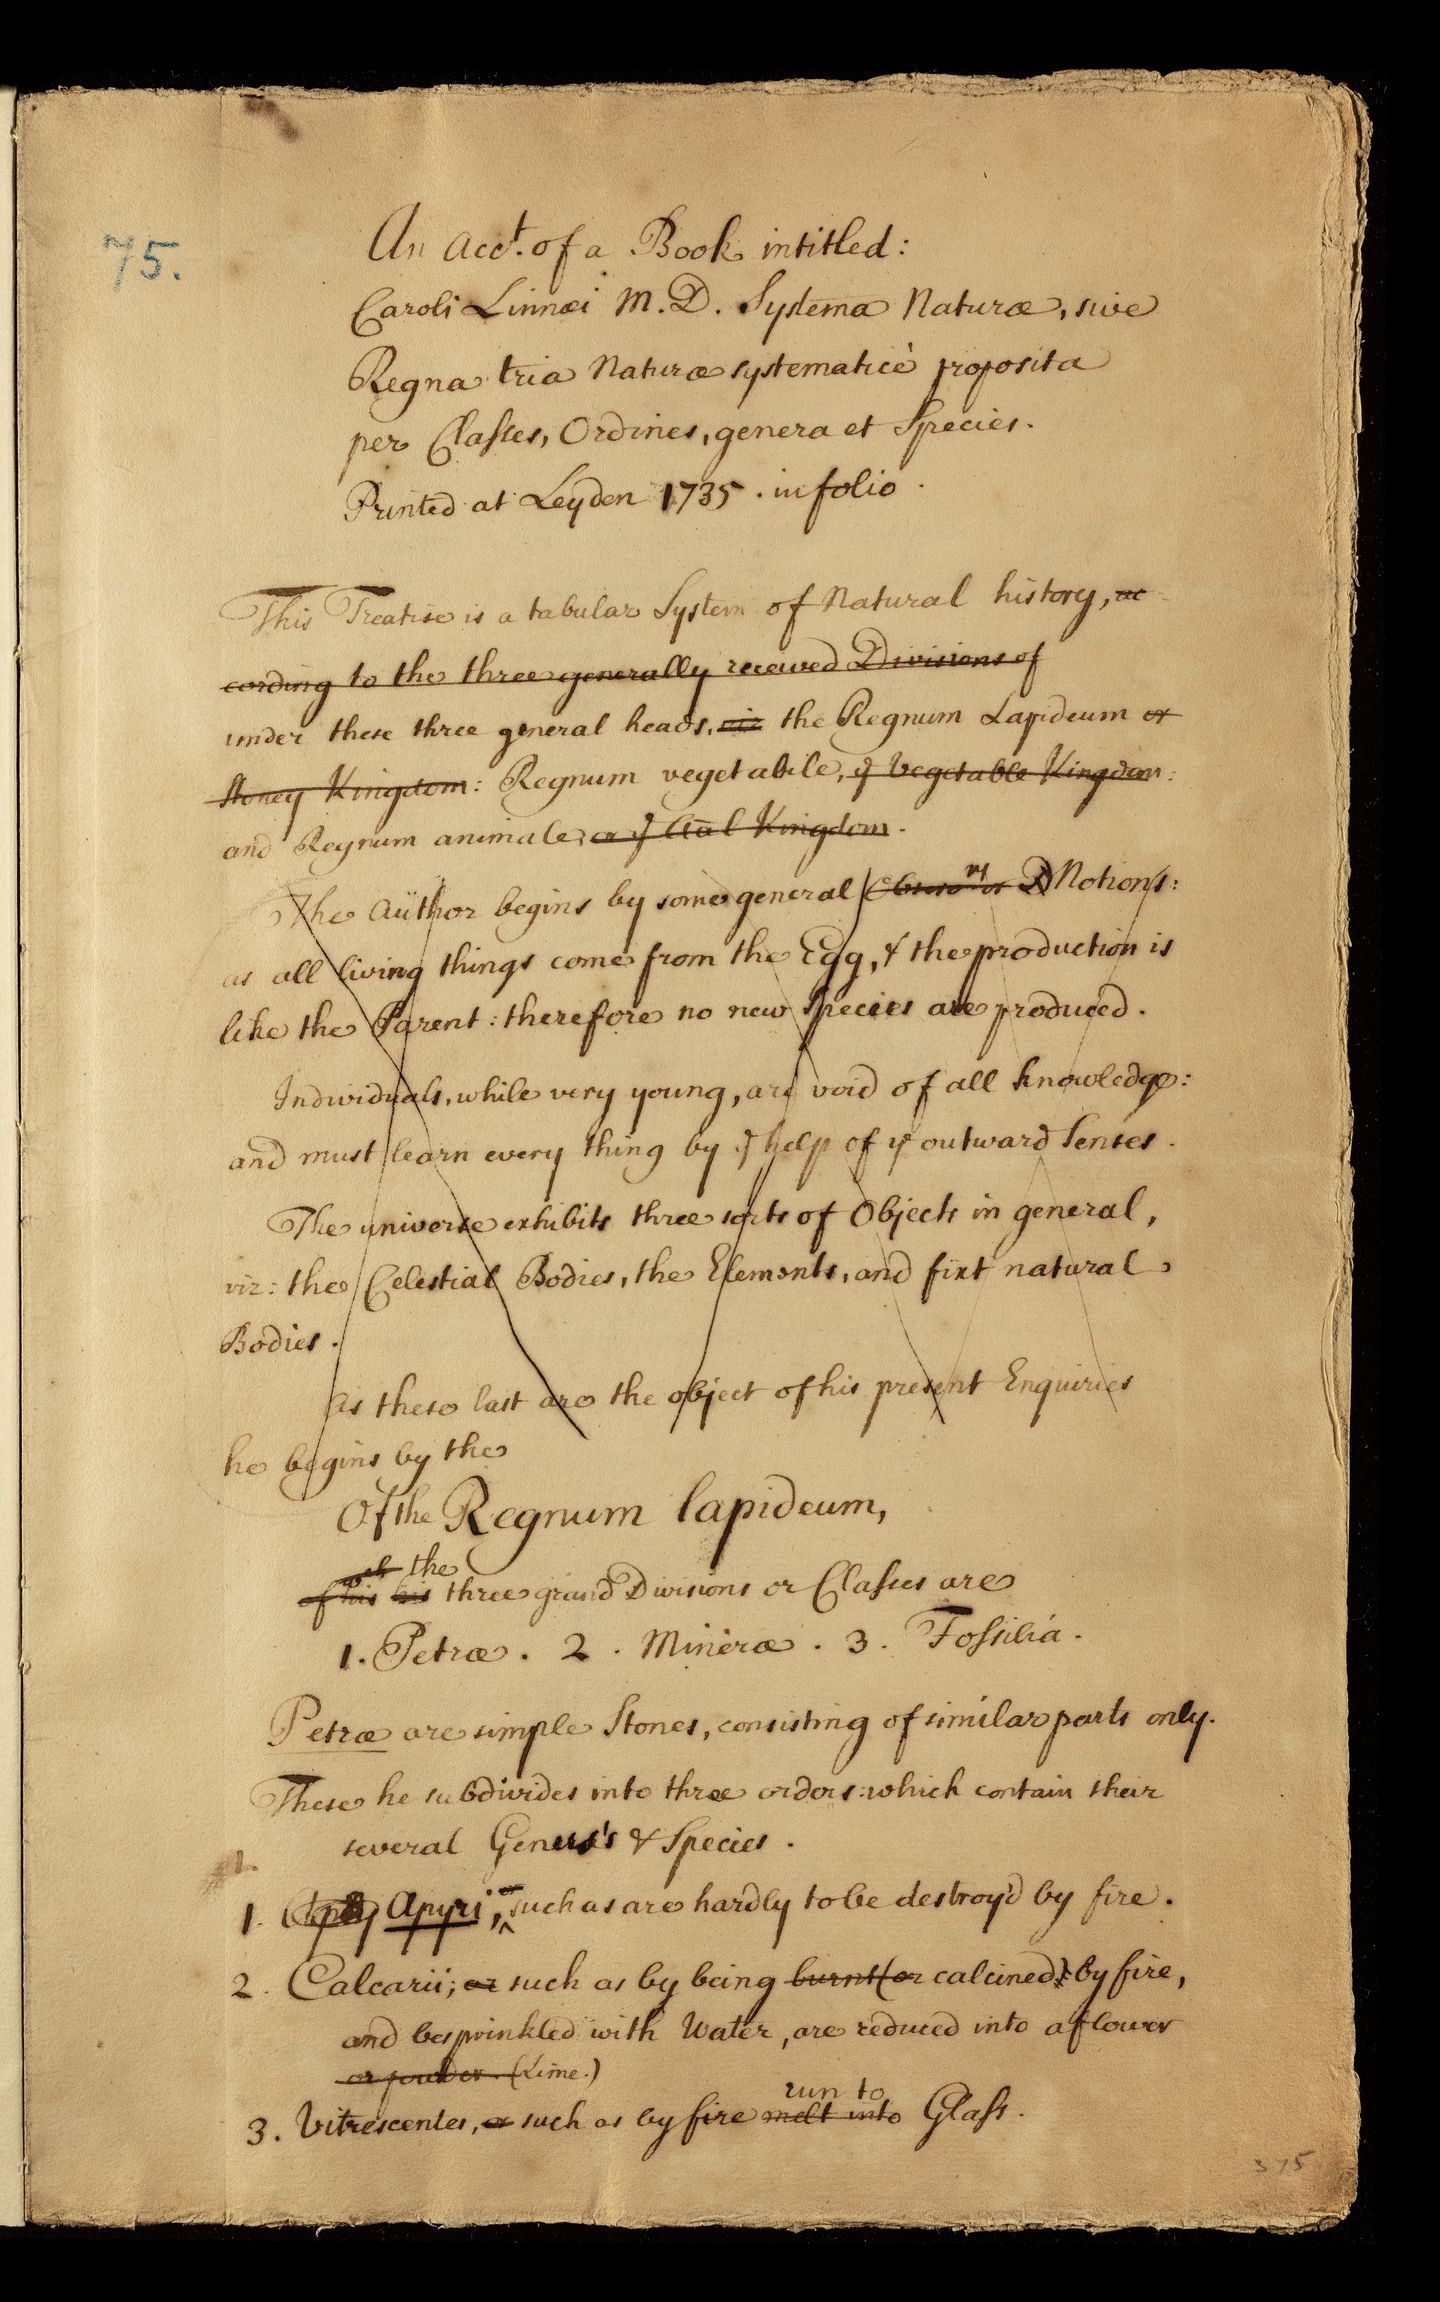 75.
An Acct. of a Book intitled:
Caroli Linnæi M.D. Systema Naturæ, sive
Regna tria Naturæ systematicè proposita
per Classes, Ordines, genera et Species.
Printed at Leyden 1735. in folio.
This Treatise is a tabular System of Natural history, ac
cording to the three generally received Divisions of
under these three general heads, viz the Regnum Lapideum or
Stoney Kingdom: Regnum vegetabile, or Vegetable Kingdom:
and Regnum animale, or ye Kingdom.
The Author begins by some general Notions:
as all living things come from the Egg, & the production is
like the Parent: therefore no new Species are produced.
Individuals, while very young, are void of all knowledge:
and must learn every thing by ye help of ye outward Senses.
The universe exhibits three sorts of Objects in general,
viz: the Celestial Bodies, the Elements, and fixt natural
Bodies.
As these last are the object of his present Enquiries
he begins by the
Of the Regnum lapideum,
the
of his his three grand Divisions or Classes are
1. Petræ. 2. Mineræ. 3. Fossilia.
Petræ are simple Stones, consisting of similar parts only.
These he subdivides into three orders: which contain their
several Genus's & Species.
1. Apyri, or such as are hardly to be destroy'd by fire.
2. Calcarii; or such as by being burnt (or calcined) by fire,
and besprinkled with Water, are reduced into a flower
or powder. (Lime.)
run to
3. Vitrescentes, or such as by fire melt into Glass.
375